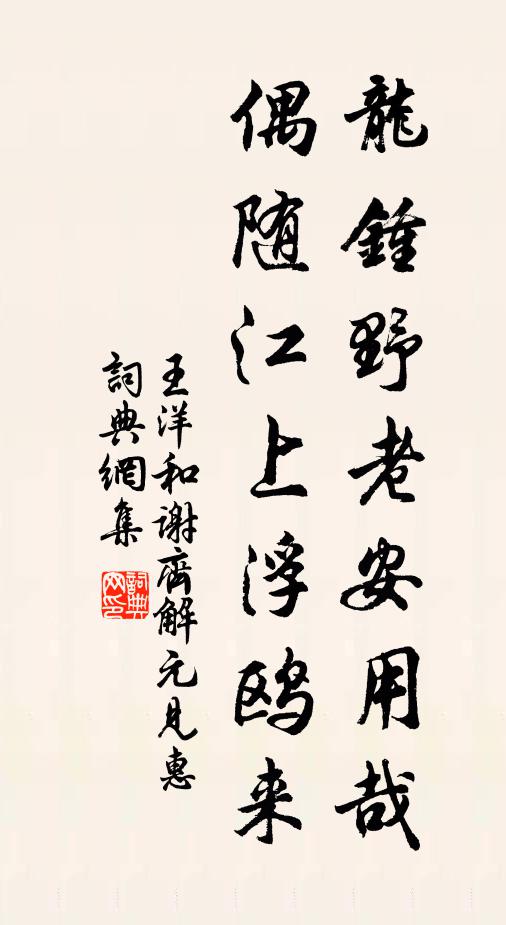 龍鍾野老安用哉
偶随江上浮鸥来
王洋和谢齊解元見惠
詞典網集
詞典网印